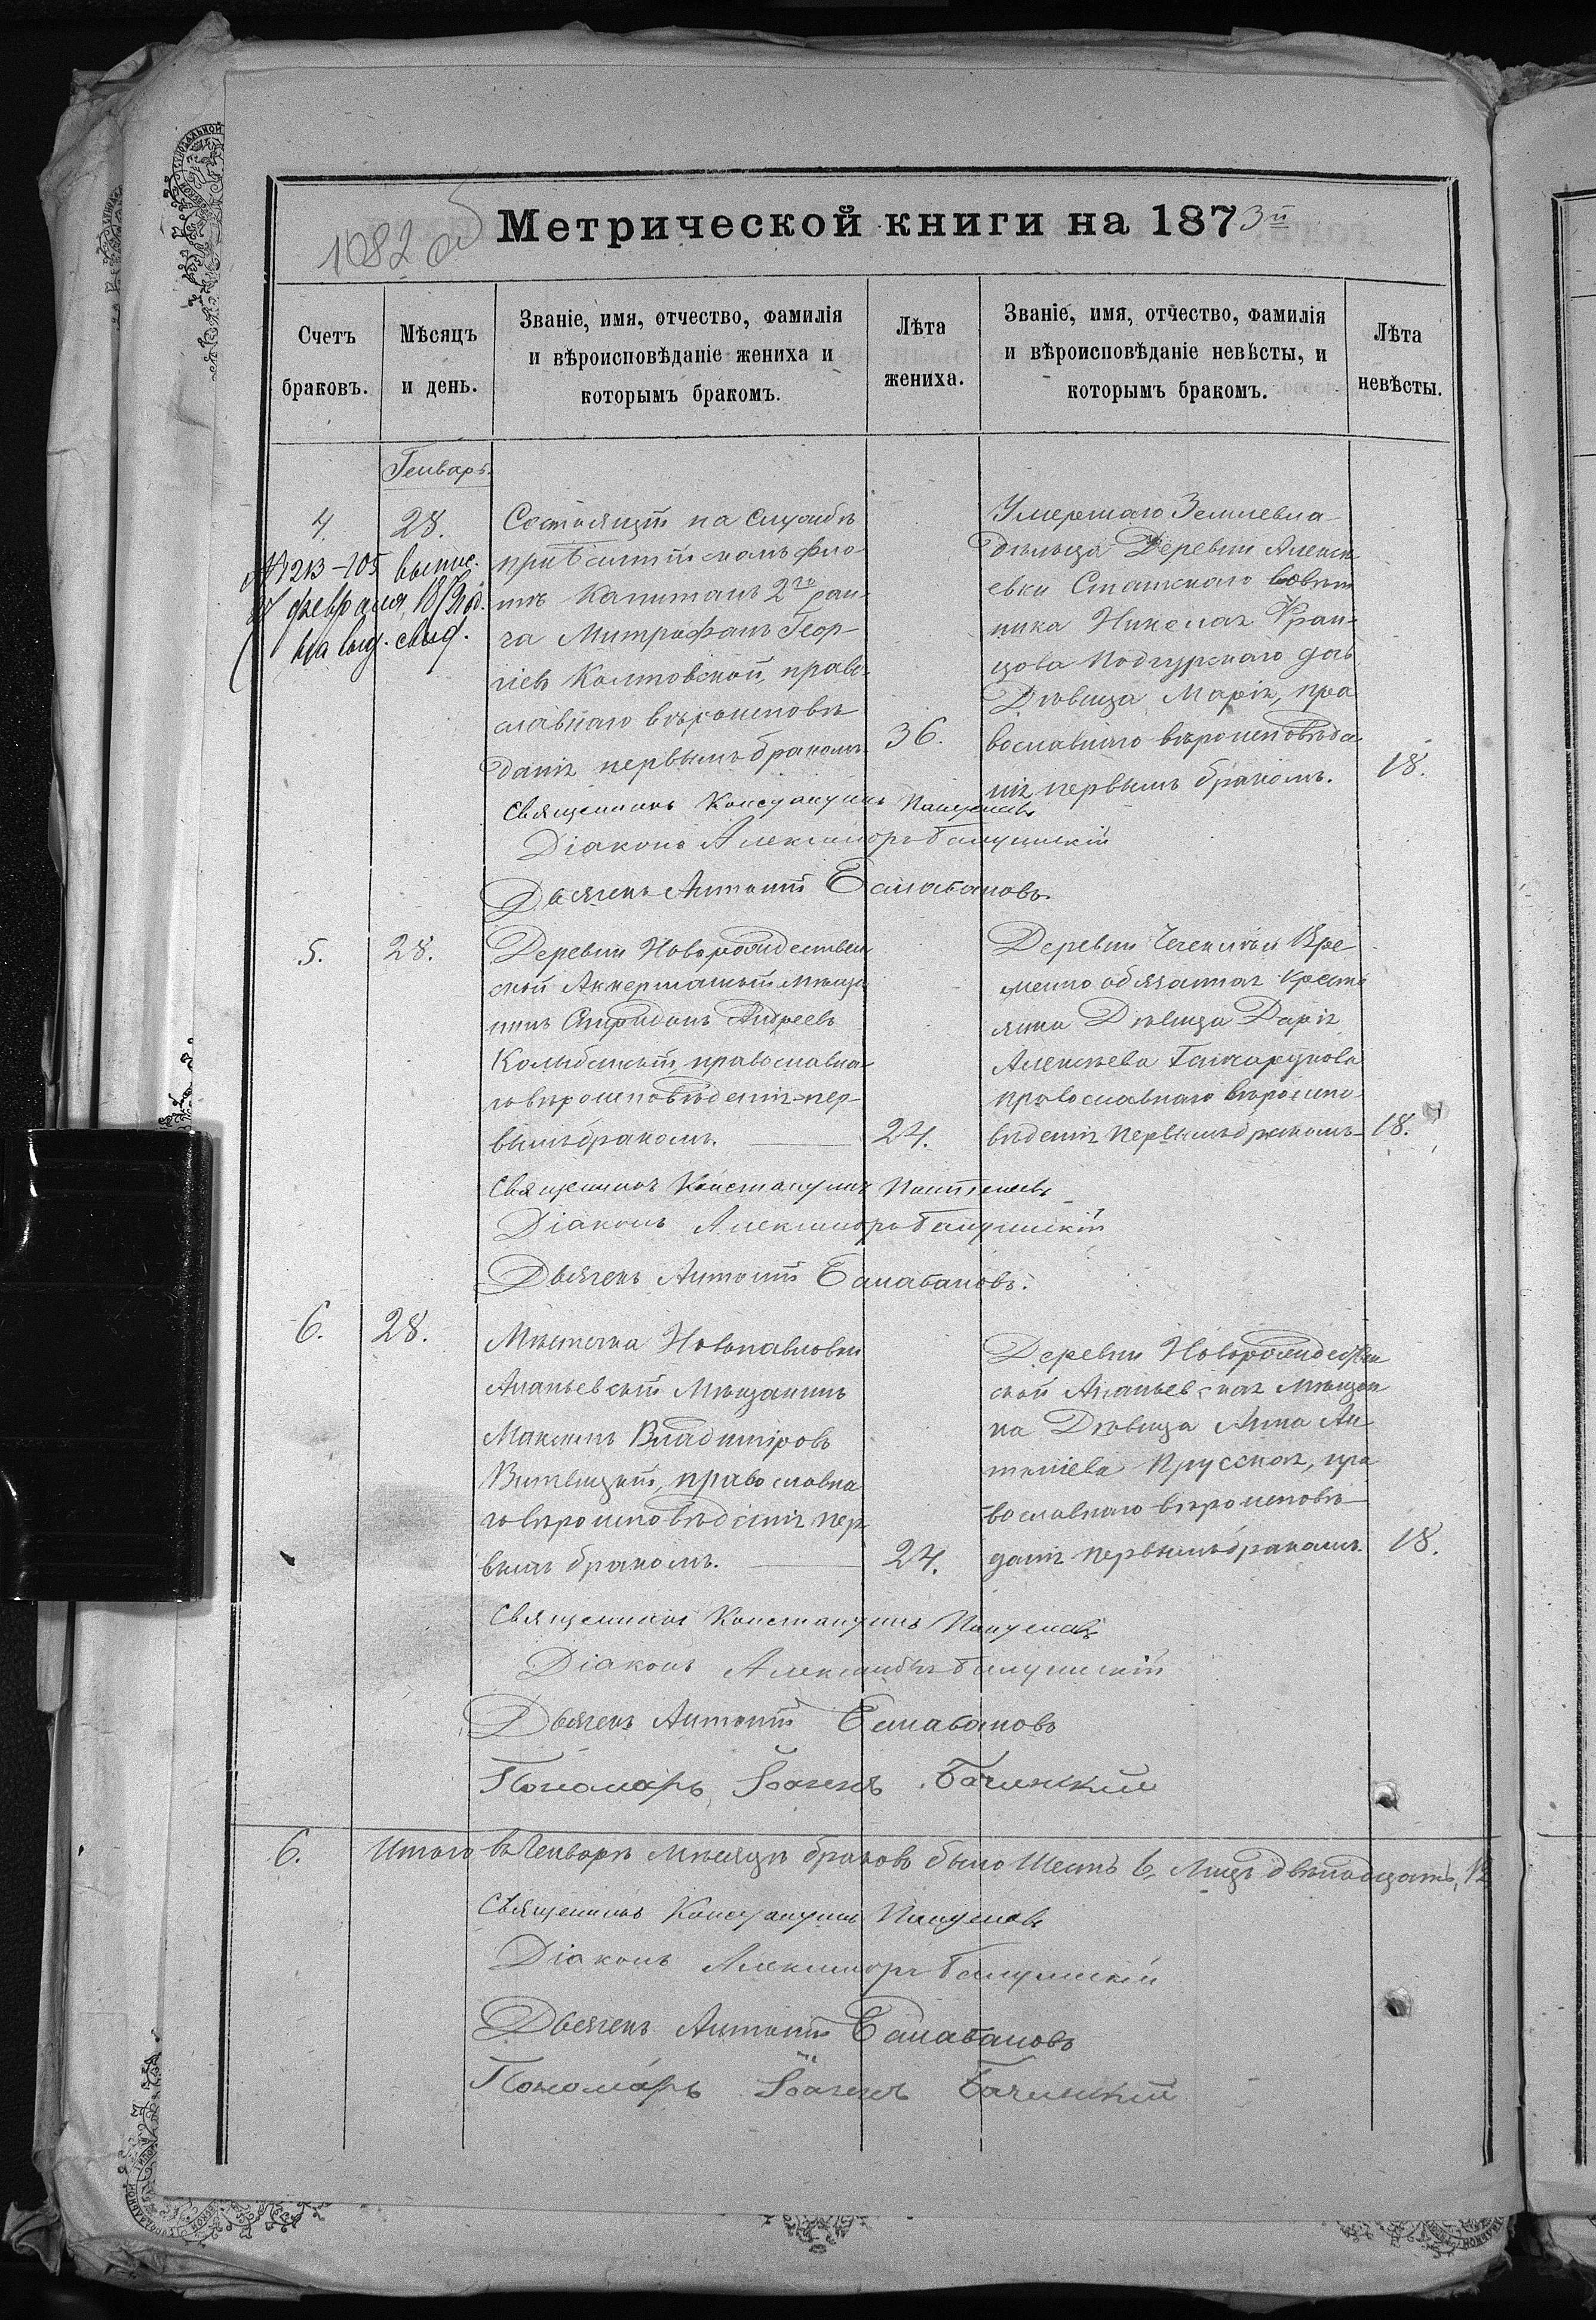 1082 об
Метрической книги на 1873й
Счетъ браковъ.
Мѣсяцъ и день.
Званіе, имя, отчество, фамилія
и вѣроисповѣданіе жениха и
которымъ бракомъ.
Лѣта
жениха.
Званіе, имя, отчество, фамилія
и вѣроисповѣданіе невѣсты, и
которымъ бракомъ.
Лѣта
невѣсты.
Генварь.
4.
28.
№ 213-105 выпис.
февраля
Состоящій на службѣ
при Балтійскомъ фло-
тѣ Капитанъ 2го ран-
га Митрофанъ Геор-
гіевъ Колтовской, право-
славнаго вѣроисповѣ-
данія первымъ бракомъ.
36.
Умершаго Землевла-
дѣльца Деревни Алексѣ-
евки Статскаго Совѣт-
ника Николая Фран-
цова Подгурскаго дочь
Дѣвица Марія, пра-
вославнаго вѣроисповѣда-
нія первымъ бракомъ.
18.
Священникъ Константинъ Пантелеевъ
Діаконъ Александръ
Дьячекъ Антоній Балабановъ.
5.
28.
Деревни Новорождествен-
ской Аккерманскій мѣща-
нинъ Спиридонъ Андреевъ
православна-
го вѣроисповѣданія пер-
вымъ бракомъ.
24.
Деревни Вре-
менно обязанная крестья-
янка Дѣвица Дарія
Алексѣева
православнаго вѣроиспо-
вѣданія первымъ бракомъ
18.
Священникъ Константинъ Пантелеевъ
Діаконъ Александръ
Дьячекъ Антоній Балабановъ.
6.
28.
Мѣстечка Новопавловки
Ананьевскій Мѣщанинъ
Максимъ Владиміровъ
Витвицкій, православна-
го вѣроисповѣданія пер-
вымъ бракомъ.
24.
Деревни Новорождествен-
ской Ананьевская мѣщан-
ка Дѣвица Анна Ан-
тоніева Прусская, пра-
вославнаго вѣроисповѣ-
данія первымъ бракомъ.
18.
Священникъ Константинъ Пантелеевъ
Діаконъ Александръ
Дьячекъ Антоній Балабановъ
Пономарь Іоаннъ Бачинскій
6.
Итого въ Генварѣ мѣсяцѣ браковъ было Шесть 6, Лицъ двѣнадцать, 12
Священникъ Константинъ Пантелеевъ
Діаконъ Александръ
Дьячекъ Антоній Балабановъ
Пономарь Іоаннъ Бачинскій